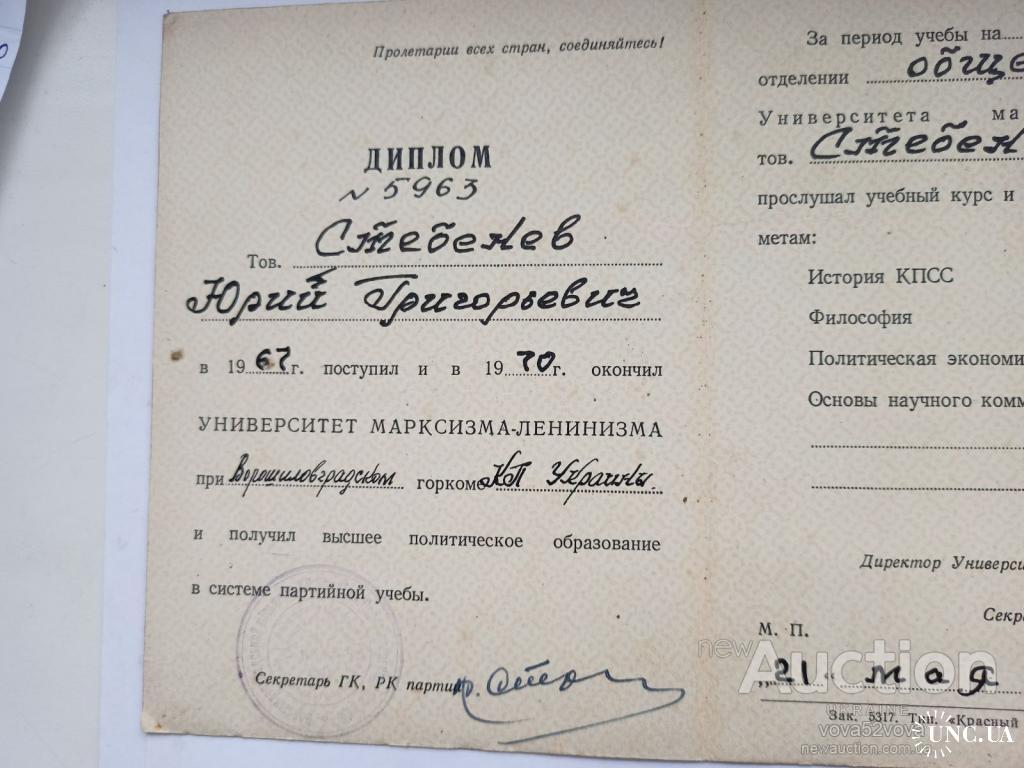 Пролетарии всех стран, соединяйтесь!
ДИПЛОМ
№ 5963
Тов. Стебелев
Юрий Григорьевич
в 1967 г. поступил и в 1970 г. окончил
УНИВЕРСИТЕТ МАРКСИЗМА-ЛЕНИНИЗМА
при Ворошиловградском горкоме КП Украины
и получил высшее политическое образование
в системе партийной учебы.
Секретарь ГК, РК партии
За период учебы на
отделении обще
Университета ма
тов. Стебел
прослушал учебный курс и
метам:
История КПСС
Философия
Политическая экономи
Основы научного комм
Директор Универси
Секре
М. П.
„21“ мая
Зак. 5317. Тип. «Красный
newAuction
UKRAINE
vova52vova
newauction.com.ua
UNC.UA